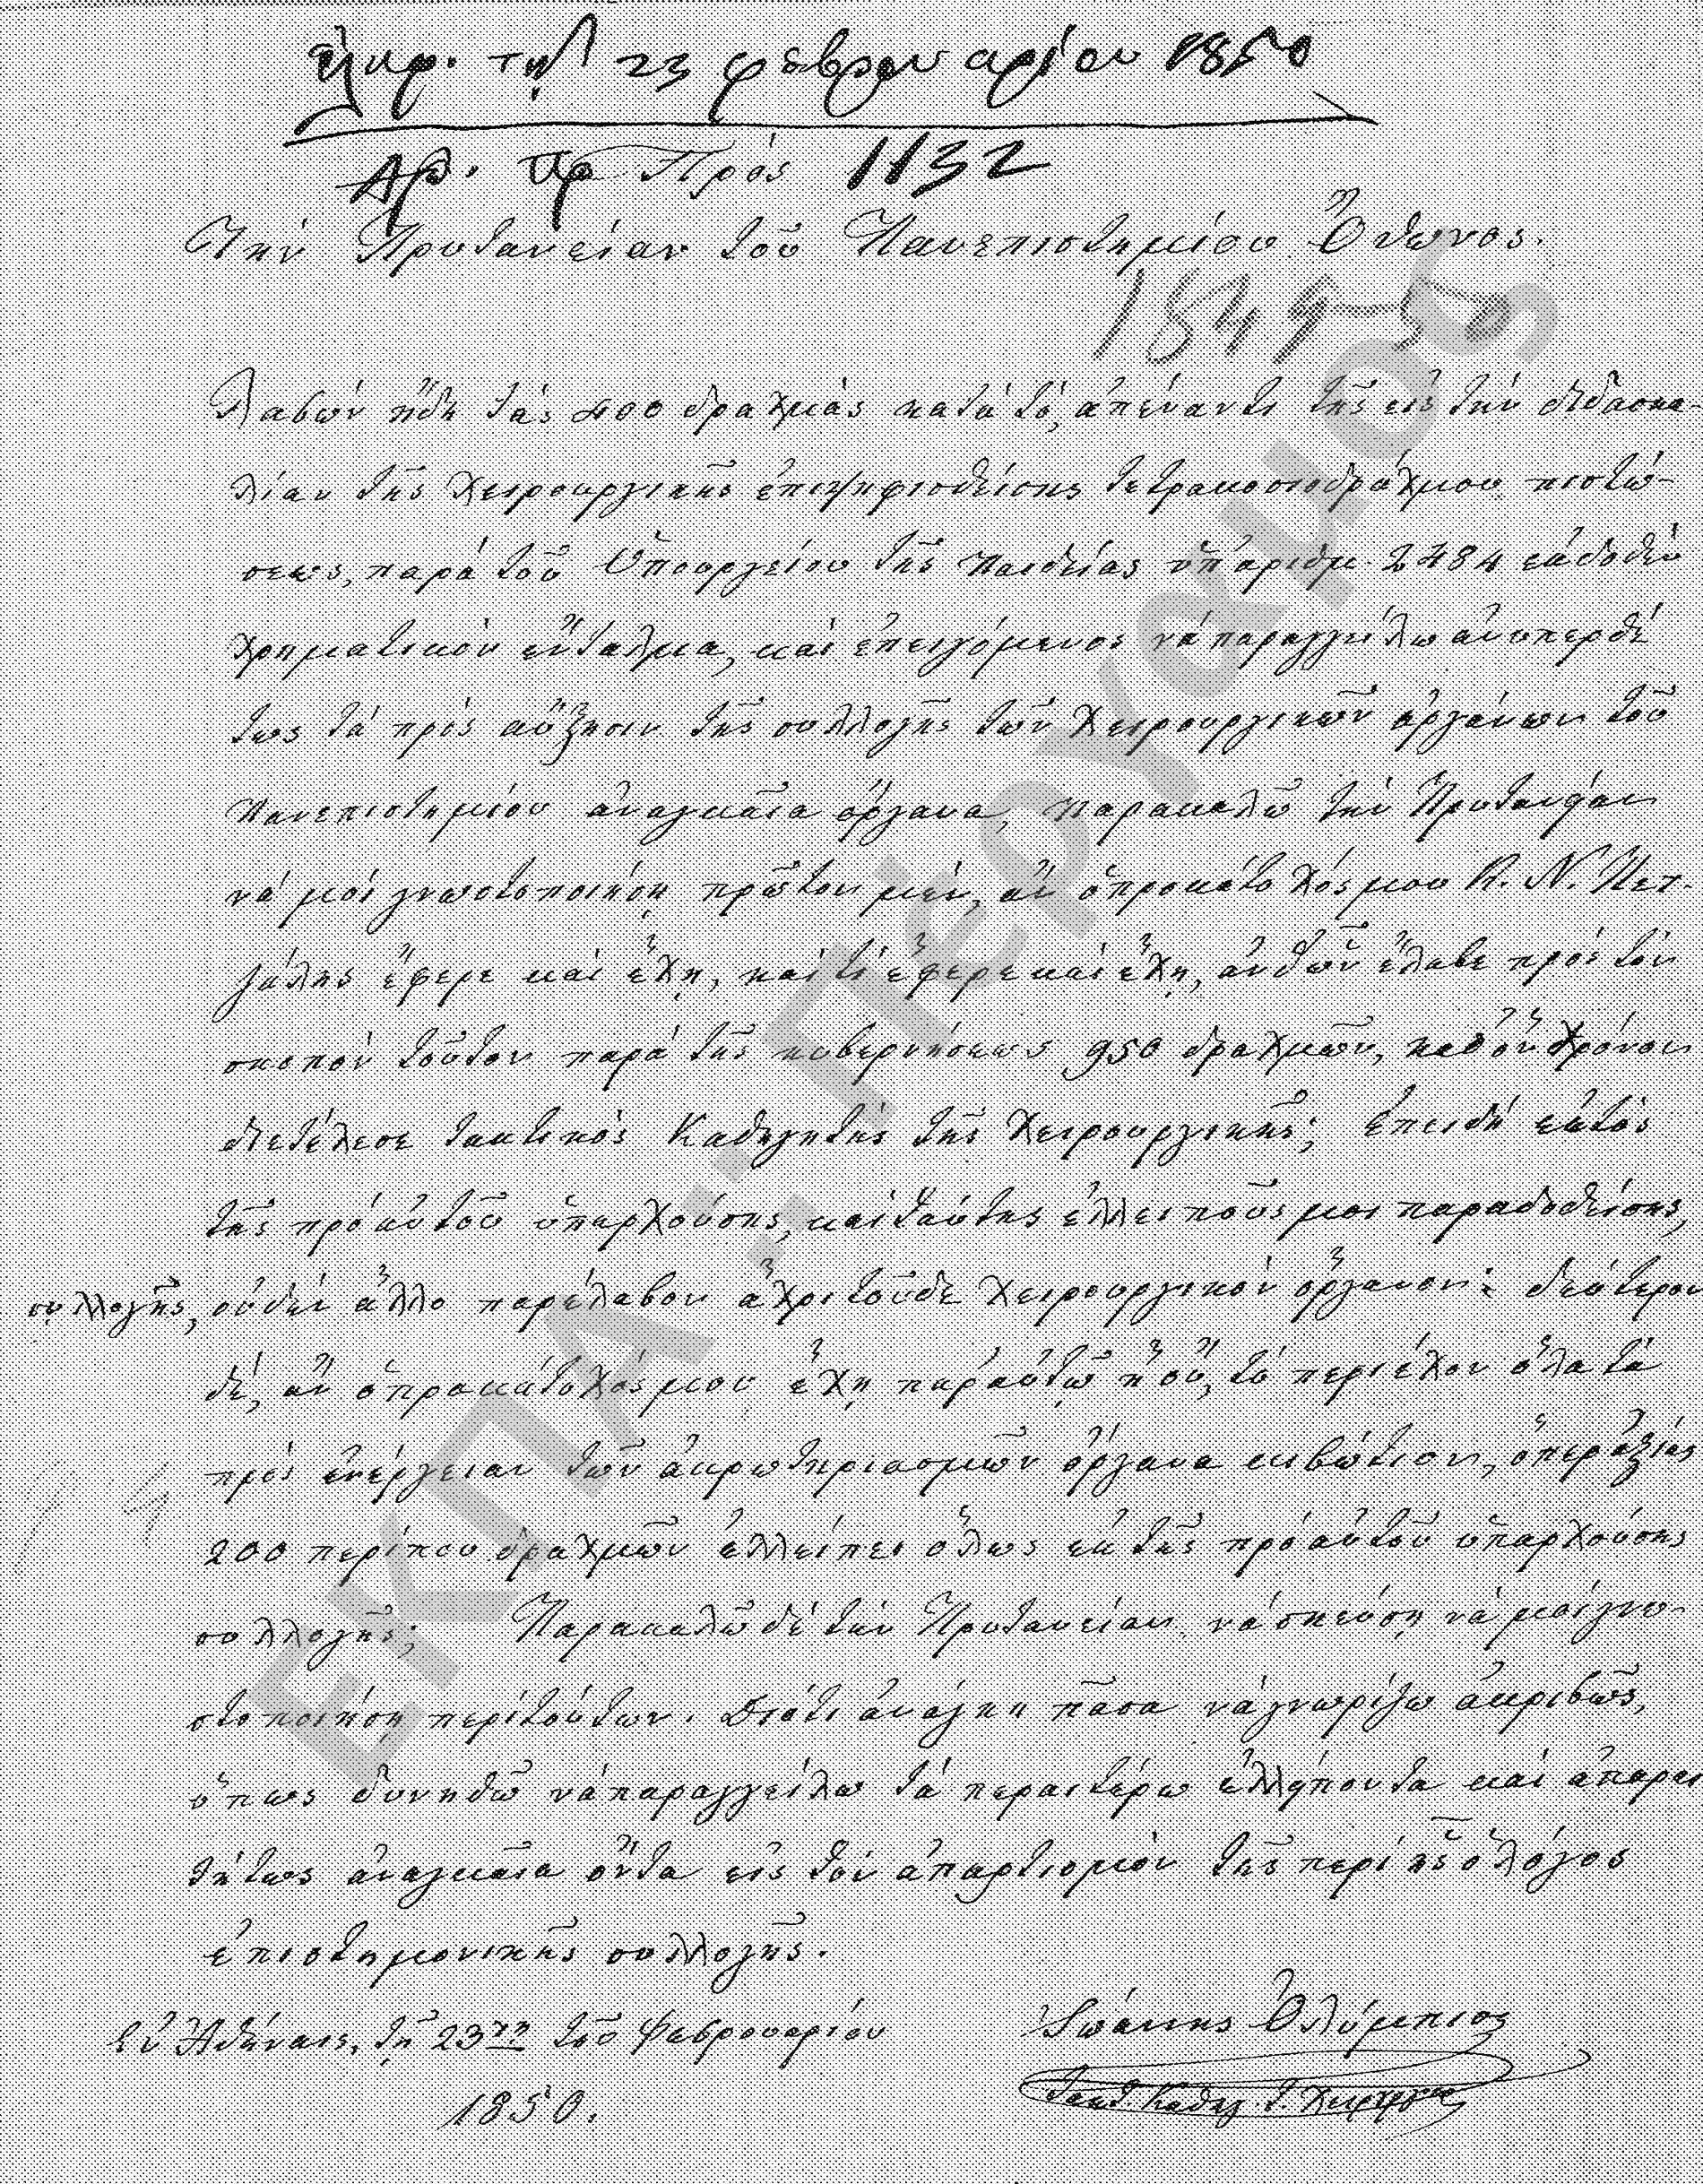 ἐληφ. τῇ 23 φεβρουαρίου 1850
Αρ. πρ 1132
Πρὸς
Τὴν Πρυτανείαν τοῦ Πανεπιστημίου Ὄθωνος.
1849-50
Λαβὼν ἤδη τὰς 400 δραχμὰς κατὰ τὸ, ἀπέναντι τῆς εἰς τὴν διδασκα-
λίαν τῆς Χειρουργικῆς ἐπιψηφισθείσης τετρακοσιοδράχμου πιστώ-
σεως, παρὰ τοῦ Ὑπουργείου τῆς Παιδείας ὑπ' ἀριθμ. 2484 ἐκδοθὲν
χρηματικὸν ἔνταλμα, καὶ ἐπειγόμενος νὰ παραγγείλω ἀνυπερθέ
τως τὰ πρὸς αὔξησιν τῆς συλλογῆς τῶν Χειρουργικῶν ὀργάνων τοῦ
Πανεπιστημίου ἀναγκαῖα ὄργανα, παρακαλῶ τὴν Πρυτανείαν
νὰ μοὶ γνωστοποιήσῃ πρῶτον μὲν, ἂν ὁ προκάτοχός μου Κ. Ν. Πετ-
σάλης ἔφερε καὶ ἔχῃ, καὶ τί ἔφερε καὶ ἔχῃ, ἀνθ' ὧν ἔλαβε πρὸς τὸν
σκοπὸν τοῦτον παρὰ τῆς κυβερνήσεως 950 δραχμῶν, καθ' ὃν χρόνον
διετέλεσε τακτικὸς Καθηγητὴς τῆς Χειρουργικῆς; ἐπειδὴ ἐκτὸς
τῆς πρὸ αὐτοῦ ὑπαρχούσης, καὶ ταύτης ἐλλειποῦς μοι παραδοθείσης,
συλλογῆς, οὐδὲν ἄλλο παρέλαβον ἄχρι τοῦδε Χειρουργικὸν ὄργανον: δεύτερον
δὲ, ἂν ὁ προκάτοχός μου ἔχῃ παρ' αὐτῷ ἢ οὔ, τὸ περιέχον ὅλα τὰ
πρὸς ἐνέργειαν τῶν ἀκρωτηριασμῶν ὄργανα κιβώτιον, ὅπερ ἀξίας
200 περίπου δραχμῶν ἐλλείπει ὅλως ἐκ τῆς πρὸ αὐτοῦ ὑπαρχούσης
συλλογῆς; Παρακαλῶ δὲ τὴν Πρυτανείαν, νὰ σπεύσῃ νὰ μοὶ γνω-
στοποιήσῃ περὶ τούτων. Διότι ἀνάγκη πᾶσα νὰ γνωρίζω ἀκριβῶς,
ὅπως δυνηθῶ νὰ παραγγείλω τὰ περαιτέρω ἐλλείποντα καὶ ἀπαραι
τήτως ἀναγκαῖα ὄντα εἰς τὸν ἀπαρτισμὸν τῆς περὶ ἧς ὁ λόγος
ἐπιστημονικῆς συλλογῆς.
Ἐν Ἀθήναις, τῇ 23ῃ τοῦ Φεβρουαρίου
1850.
Ἰωάννης Ὀλύμπιος
Τακτ. Καθηγ. τ. Χειρουργικῆς
ΕΚΠΑ :: Πέργαμος